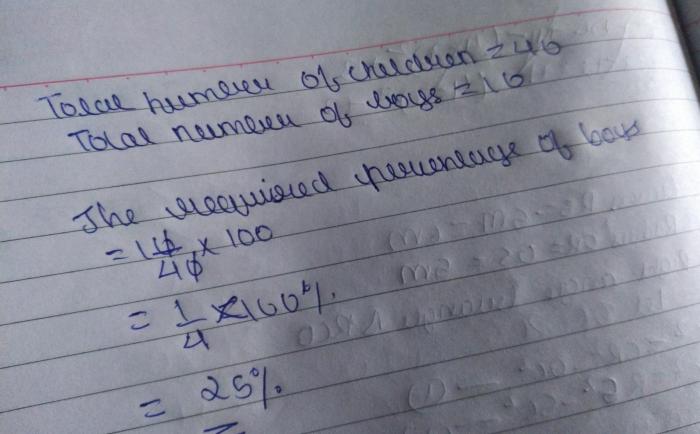 Total number of children = 40
Total number of boys = 10
The required percentage of boys
= 10/40 × 100
= 1/4 × 100%
= 25%